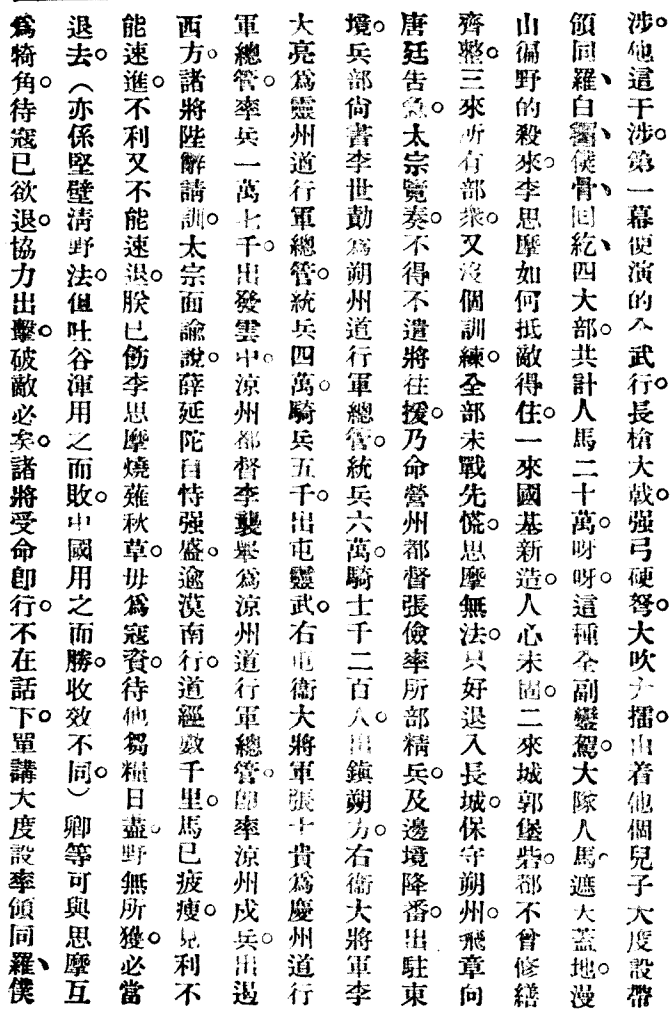 涉。他這干涉。第一幕便演的全武行。長槍大戟。强弓硬弩。大吹大擂。由着他個兒子大度設帶
領同羅、白霫、僕骨、回紇、四大部。共計人馬二十萬。呀呀。這種全副鑾駕。大隊人馬。遮天蓋地。漫
山徧野的殺來。李思摩如何抵敵得住。一來國基新造。人心未固。二來城郭堡砦。都不曾修繕
齊整。三來所有部衆。又沒個訓練。全部未戰先慌。思摩無法。只好退入長城。保守朔州。飛章向
唐廷告急。太宗覽奏。不得不遣將往援。乃命營州都督張儉率所部精兵。及邊境降番。出駐東
境。兵部尙書李世勣爲朔州道行軍總管。統兵六萬。騎士千二百人。出鎭朔方。右衞大將軍李
大亮爲靈州道行軍總管。統兵四萬。騎兵五千。出屯靈武。右屯衞大將軍張士貴爲慶州道行
軍總管。率兵一萬七千。出發雲中。涼州都督李襲譽爲涼州道行軍總管。卽率涼州戍兵。出遏
西方。諸將陛辭請訓。太宗面諭說。薛延陀自恃强盛。逾漠南行。道經數千里。馬已疲瘦。見利不
能速進。不利又不能速退。朕已飭李思摩燒薙秋草。毋爲寇資。待他芻糧日盡。野無所獲。必當
退去。（亦係堅壁淸野法。但吐谷渾用之而敗。中國用之而勝。收效不同）卿等可與思摩互
爲犄角。待寇已欲退。協力出擊。破敵必矣。諸將受命卽行。不在話下。單講大度設率領同羅、僕